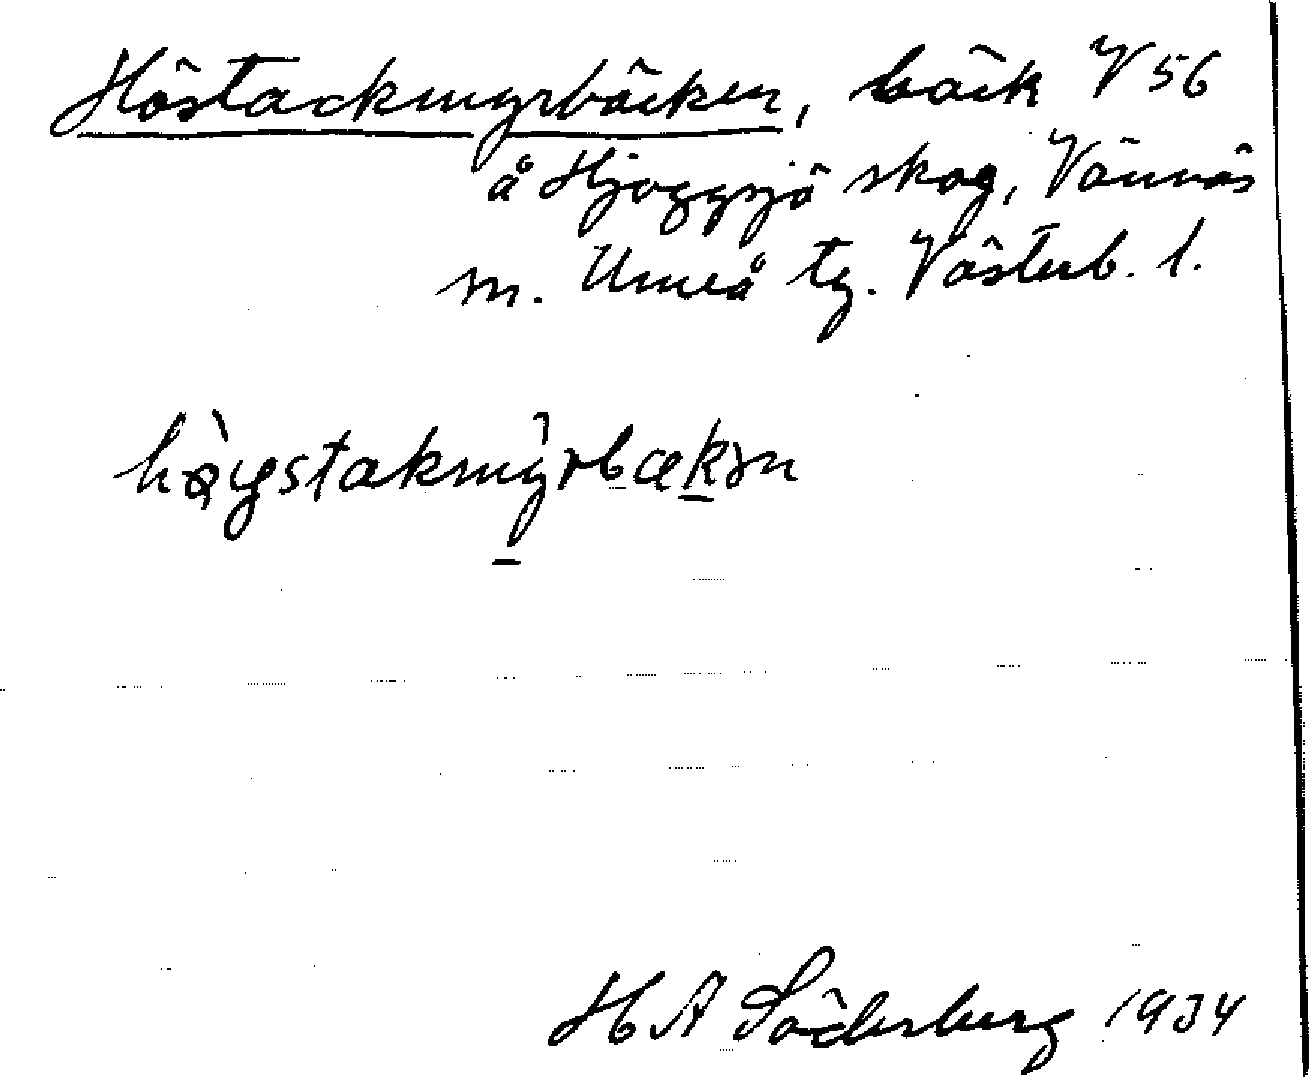 Höstackmyrbäcken, bäck V 56
å Hjoggsjö skog, Vännäs
m. Umeå tg. Västerb. l.
hø̀ystakmỳrbækən
H A Söderberg 1934